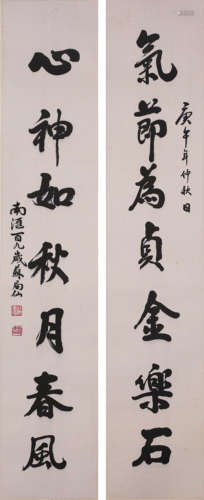 氣節為貞金樂石
庚午年仲秋日
心神如秋月春風
南滙百九歲蘇局仙